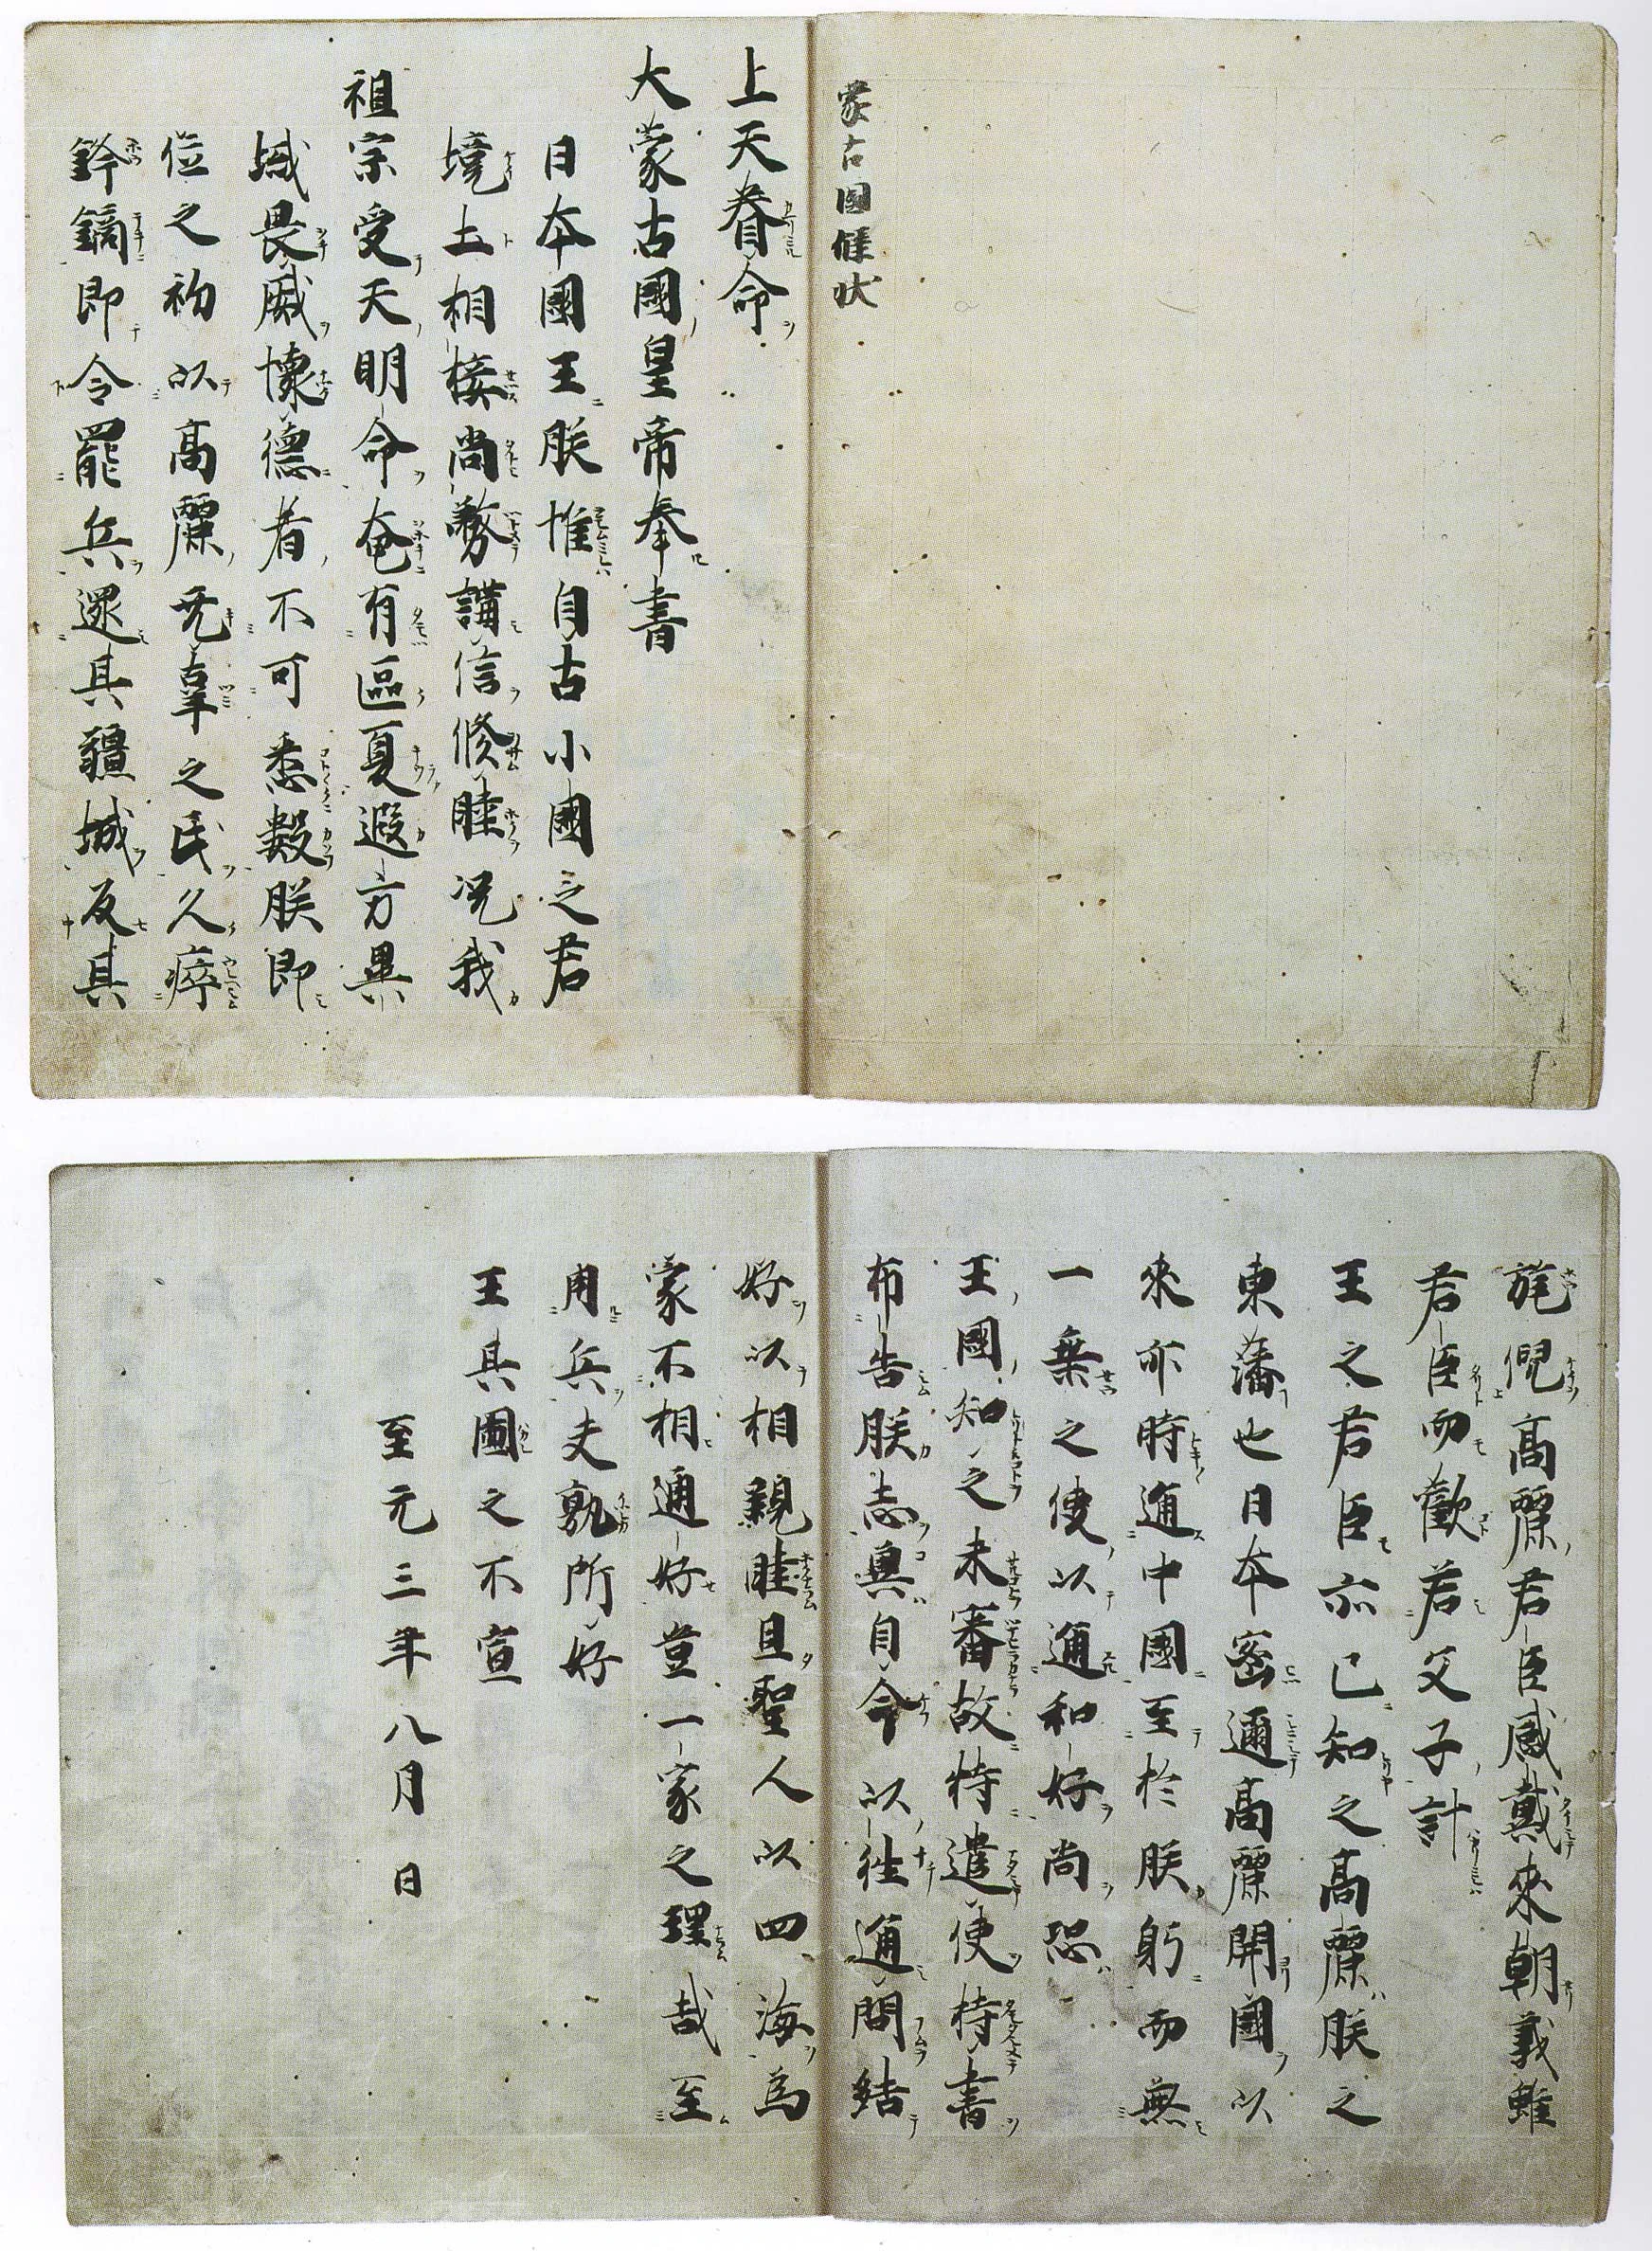 蒙古國牒状
上天眷命
大蒙古國皇帝奉書
日本國王朕惟自古小國之君
境土相接尚務講信修睦况我
祖宗受天明命奄有區夏遐方異
域畏威懐德者不可悉數朕即
位之初以高麗无辜之民久瘁
鋒鏑即令罷兵還其疆域反其
旄倪高麗君臣感戴來朝義雖
君臣而歡若父子計
王之君臣亦已知之高麗朕之
東藩也日本密邇高麗開國以
來亦時通中國至於朕躬而無
一乗之使以通和好尚恐
王國知之未審故特遣使持書
布告朕志冀自今以往通問結
好以相親睦且聖人以四海為
家不相通好豈一家之理哉至
用兵夫孰所好
王其圖之不宣
至元三年八月 日